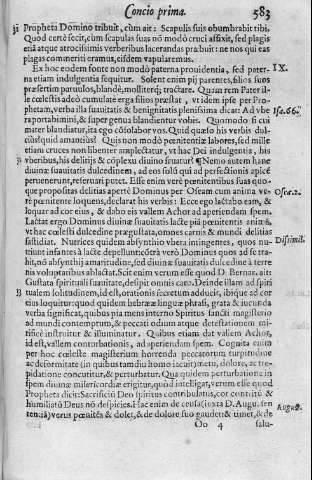 Concio prima. 583
Propheta Domino tribuit, cùm ait: Scapulis suis obumbrabit tibi.
Quod certè fecit, cùm scapulas suas nō modò cruci affixit, sed plagis
etiā atque atrocissimis verberibus lacerandas præbuit: ne nos qui eas
plagas cōmeriti eramus, eisdem vapularemus.
Ex hoc eodem fonte non modò paterna prouidentia, sed pater- IX.
na etiam indulgentia sequitur. Solent enim pij parentes, filios suos
præsertim paruulos, blandè, molliterq; tractare. Quam rem Pater il-
le cœlestis adeò cumulatè erga filios præstat, vt idem ipse per Pro-
phetam, verba illa suauitatis & benignitatis plenissima dicat: Ad vbe Isa.66.
ra portabimini, & super genua blandientur vobis. Quomodo si cui
mater blandiatur, ita ego cōsolabor vos. Quid quæso his verbis dul-
cius? quid amantius? Quis non modò pœnitentiæ labores, sed mille
etiam cruces non libenter amplectatur, vt hac Dei indulgentia, his
vberibus, his delitijs & cōplexu diuino fruatur? ¶ Nemo autem hanc
diuinæ suauitatis dulcedinem, ad eos solū qui ad perfectionis apicē
peruenerunt, referuari putet. Esse enim verè pœnitentibus suas quo-
que propositas delitias apertè Dominus per Oseam cum anima ve- Osee.2.
rè pœnitente loquens, declarat his verbis: Ecce ego lactabo eam, &
loquar ad cor eius, & dabo eis vallem Achor ad aperiendam spem.
Lactat ergo Dominus diuinæ suauitatis lacte piā pœnitentis animā,
vt hac cœlesti dulcedine prægustata, omnes carnis & mundi delitias
fastidiat. Nutrices quidem absynthio vbera intingentes, quos nu- Dissimil.
triunt infantes à lacte depellunt: cōtrà verò Dominus quos ad se tra-
hit, nō absynthij amaritudine, sed diuinæ suauitatis dulcedine à terre
nis voluptatibus ablactat. Scit enim verum esse quod D. Bernar. ait:
Gustata spirituali suauitate, desipit omnis caro. Deinde illam ad spiri
tualem solitudinem, id est, orationis secretum adducit, ibique ad cor
eius loquitur: quod quidem hebrææ linguæ phrasi, grata & iucunda
verba significat, quibus pia mens interno Spiritus sancti magisterio
ad mundi contemptum, & peccati odium atque detestationem mi-
rificè instruitur & illuminatur. Quibus etiam dat vallem Achor,
id est, vallem conturbationis, ad aperiendam spem. Cognita enim
per hoc cœleste magisterium horrenda peccatorum turpitudine
ac deformitate (in quibus tamdiu homo iacuit) metu, dolore, ac tre-
pidatione concutitur, & perturbatur. Qua quidem perturbatione in
spem diuinæ misericordiæ erigitur, quòd intelligat, verum esse quod
Propheta dicit: Sacrificiū Deo spiritus contribulatus, cor contritū &
humiliatū Deus nō despicies. Hac enim de causa (iuxta D. Aug. sen
tentiā) verus pœnitēs & dolet, & de dolore suo gaudet: & timet, & de August.
Oo 4 salu-